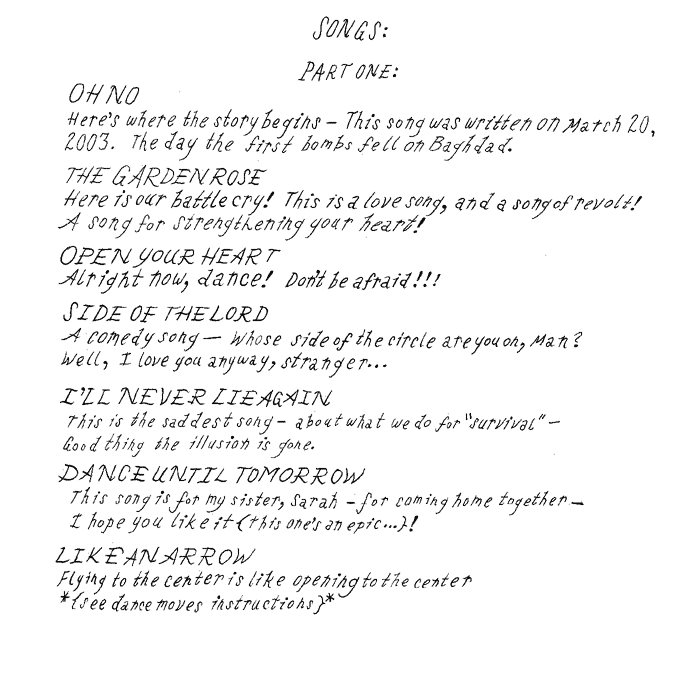 SONGS:
PART ONE:
OH NO
Here's where the story begins – This song was written on March 20,
2003. The day the first bombs fell on Baghdad.
THE GARDEN ROSE
Here is our battle cry! This is a love song, and a song of revolt!
A song for strengthening your heart!
OPEN YOUR HEART
Alright now, dance! Don't be afraid!!!
SIDE OF THE LORD
A comedy song – Whose side of the circle are you on, Man?
Well, I love you anyway, stranger...
I'LL NEVER LIE AGAIN
This is the saddest song – about what we do for "survival" –
Good thing the illusion is gone.
DANCE UNTIL TOMORROW
This song is for my sister, Sarah – for coming home together –
I hope you like it (this one's an epic...)!
LIKE AN ARROW
Flying to the center is like opening to the center
*(see dance moves instructions)*